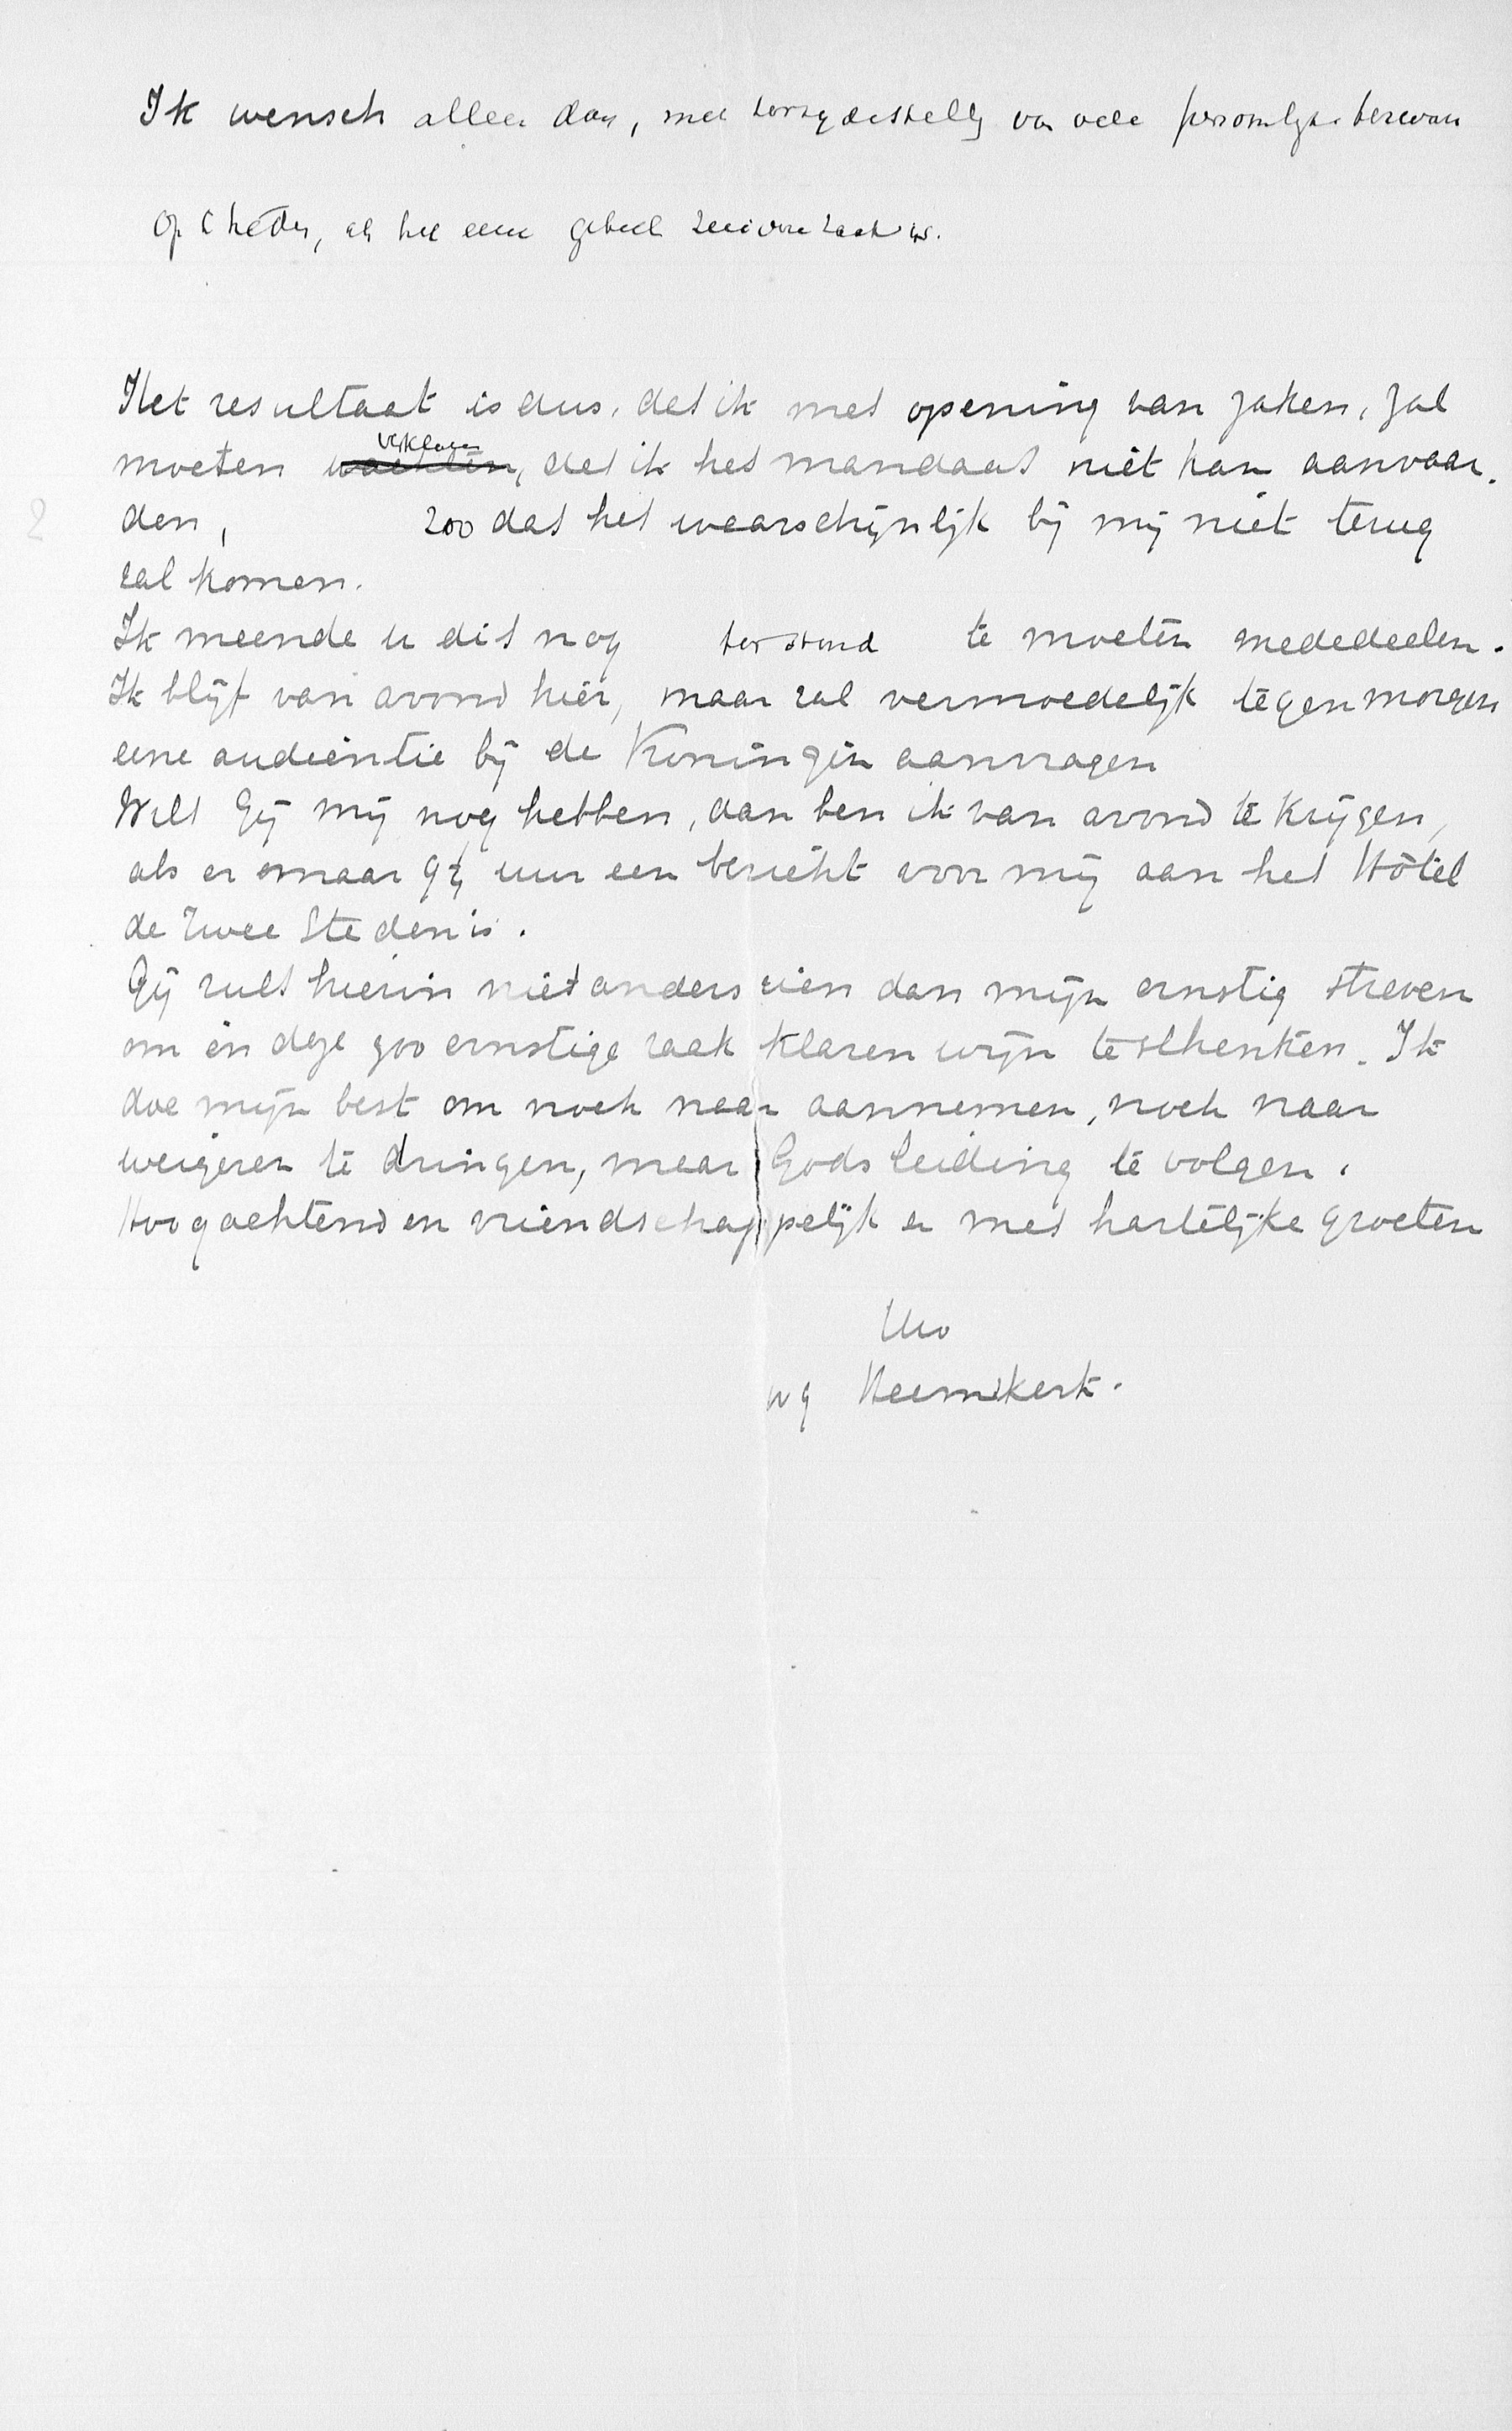 Ik wensch alleen dan, met terzijdestelling van vele persoonlijke bezwaren
op treden, als het eene geheel zuivere zaak is.
Het resultaat is dus, dat ik met opening van zaken, zal
verklaren
moeten wachten, dat ik het mandaat niet kan aanvaar-
2 den, zoo dat het waarschijnlijk bij mij niet terug
zal komen.
Ik meende u dit nog terstond te moeten mededeelen.
Ik blijf van avond hier, maar zal vermoedelijk tegen morgen
eene audientie bij de Koningin aanvragen
Wilt Gij mij nog hebben, dan ben ik van avond te krijgen,
als er om uur een bericht voor mij aan het Hôtel
de Twee Steden is.
Gij zult hierin niet anders zien dan mijn ernstig streven
om in deze zoo ernstige zaak klaren wijn te schenken. Ik
doe mijn best om noch naar aannemen, noch naar
weigeren te dringen, maar Gods leiding te volgen.
Hoogachtend en vriendschappelijk en met hartelijke groeten
Uw
wg Heemskerk.